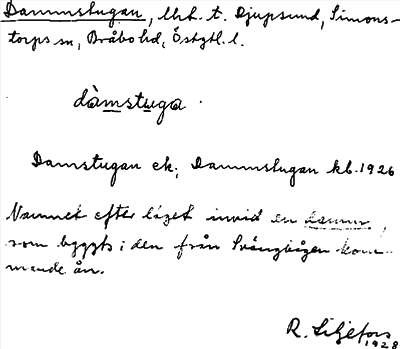 Dammstugan, lht. t. Djupsund, Simons-
torps sn, Bråbo hd, Östgtl. l.
dàmstuga.
Damstugan ek; Dammstugan kb. 1926
Namnet efter läget invid en damm,
som byggts i den från Svängbågen kom-
mande ån.
R. Liljefors
1928